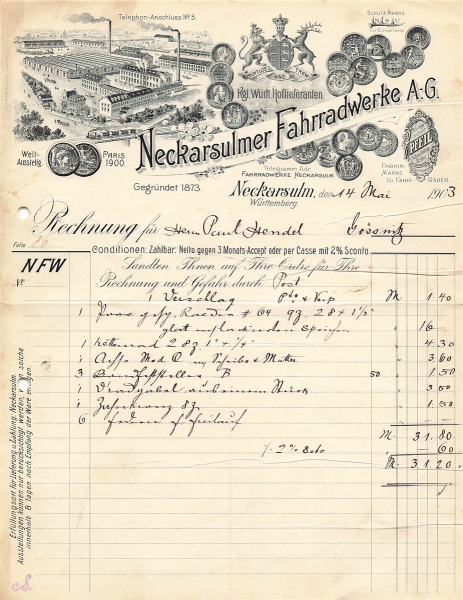 Telephon-Anschluss No 5.
Schutz Marke
NSU
für Einzelteile
FURCHTLOS UND TREW
Kgl. Württ. Hoflieferanten.
Neckarsulmer Fahrradwerke A.-G.
Welt-Ausstellg PARIS 1900.
Gegründet 1873.
Telegramm Adr.
FAHRRADWERKE NECKARSULM
PFEIL
FABRIK-MARKE FÜR FAHR-RÄDER.
Neckarsulm, den 14 Mai 1903
Württemberg.
Rechnung für Herrn Paul Hendel Gössnitz
Folio
Conditionen: Zahlbar: Netto gegen 3 Monats-Accept oder per Casse mit 2% Sconto.
NFW
No
Sandten Ihnen auf Ihre Ordre für Ihre
Rechnung und Gefahr durch Post
1 Verschlag Pto & Verp M. 1.40
1 Paar Raeder # 64 28 + 1½"
Speichen " 16
1 Kettenrad 28 z 1" + ¼" " 4.30
1 Achse Mod Q m Scheibe & Mutter " 3.60
3 B 50 " 1.50
1 Vradgabel aus einem Stück " 3.50
1 Zahnkranz 8z. " 1.50
6 Federn f. Freilauf
M. 31.80
./. 2% Scto -.60
M. 31.20
Erfüllungsort für Lieferung u. Zahlung: Neckarsulm
Ausstellungen können nur berücksichtigt werden, wenn solche
innerhalb 8 Tagen nach Empfang der Ware erfolgen.